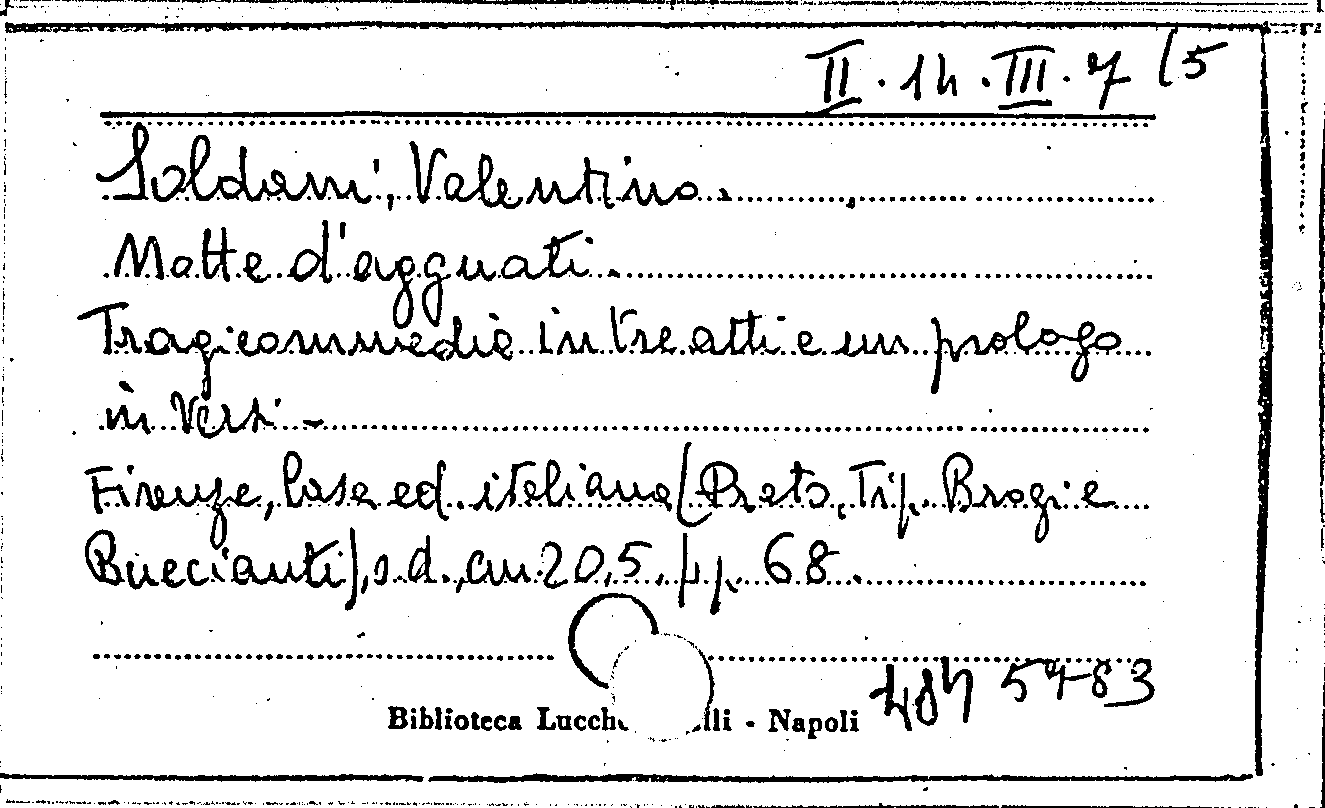 II. 14. III. 7 (5
Soldani, Valentino.
Matte d'agguati.
Tragicommedia in tre atti e un prologo
in versi. -
Firenze, Casa ed. italiana (Prato, Tip. Brogi e
Buccianti), s.d., cm. 20,5, pp. 68.
Biblioteca Lucch lli - Napoli
5783